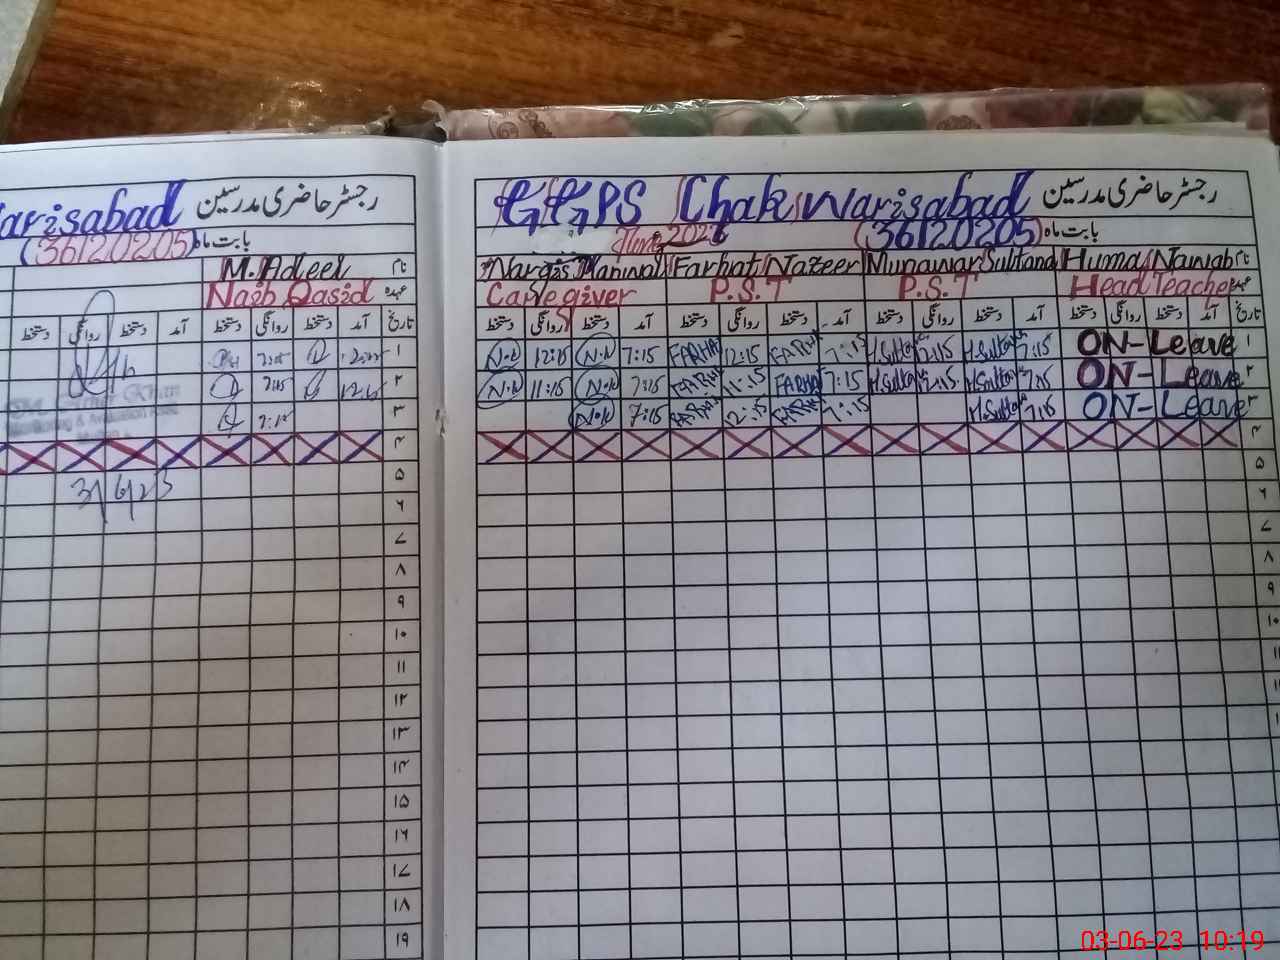 arisabad رجسٹر حاضری مدرسین
(36120205) بابت ماہ
M. Adeel نام
Naib Qasid عہدہ
دستخط روانگی دستخط آمد دستخط روانگی دستخط آمد تاریخ
۱
۲
۳
۴
3/6/23 ۵
۶
۷
۸
۹
۱۰
۱۱
۱۲
۱۳
۱۴
۱۵
۱۶
۱۷
۱۸
۱۹
GGPS Chak Warisabad رجسٹر حاضری مدرسین
June 2023 (36120205) بابت ماہ
Nargis Farhat/Nazeer Munawar/Sultana Huma/Nawab نام
Care giver P.S.T P.S.T Head Teacher عہدہ
دستخط روانگی دستخط آمد دستخط روانگی دستخط آمد دستخط روانگی دستخط آمد دستخط روانگی دستخط آمد تاریخ
N.K 12:15 N.K 7:15 FARHA 12:15 FARHA 7:15 M.Sultana 12:15 M.Sultana 7:15 ON-Leave ۱
N.K 11:15 N.K 7:15 FARHA 11:15 FARHA 7:15 M.Sultana 12:15 M.Sultana 7:15 ON-Leave ۲
N.K 7:15 FARHA 12:15 FARHA 7:15 M.Sultana 7:15 ON-Leave ۳
۴
۵
۶
۷
۸
۹
۱۰
03-06-23 10:19